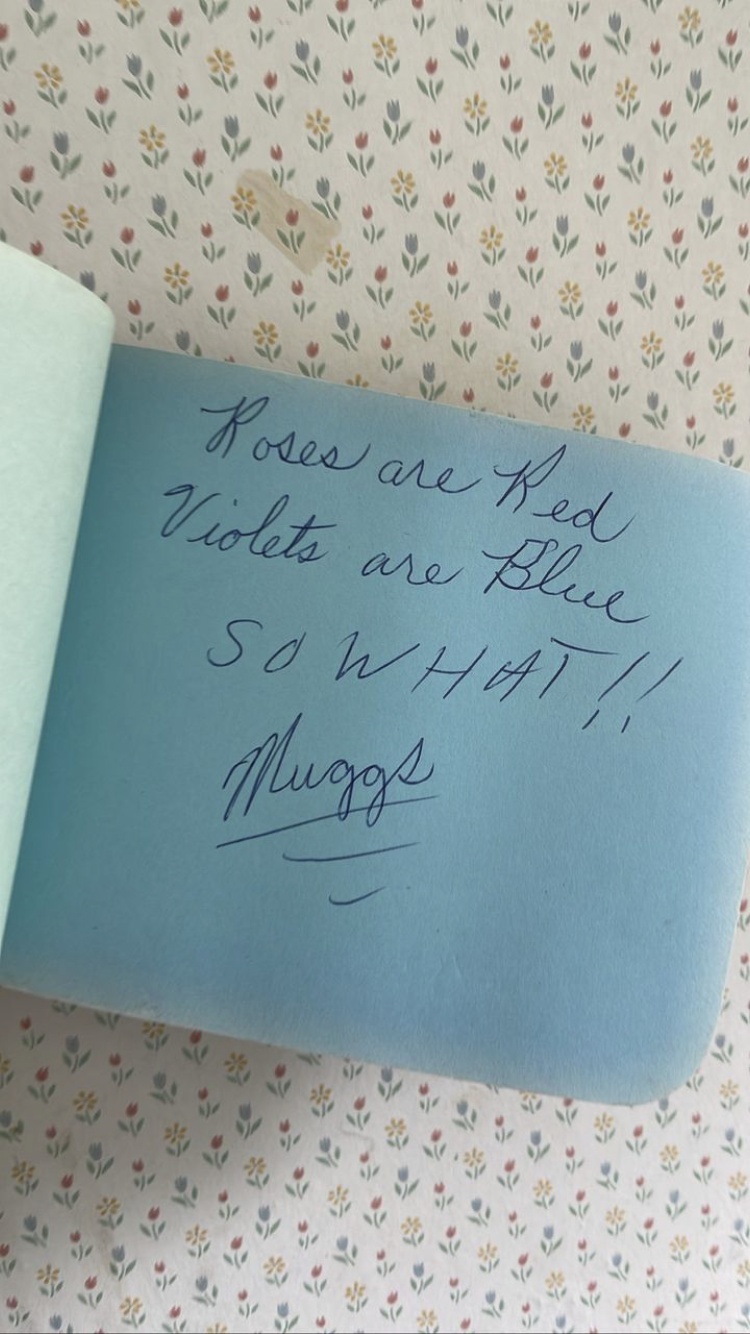 Roses are Red
Violets are Blue
SO WHAT!!
Muggs